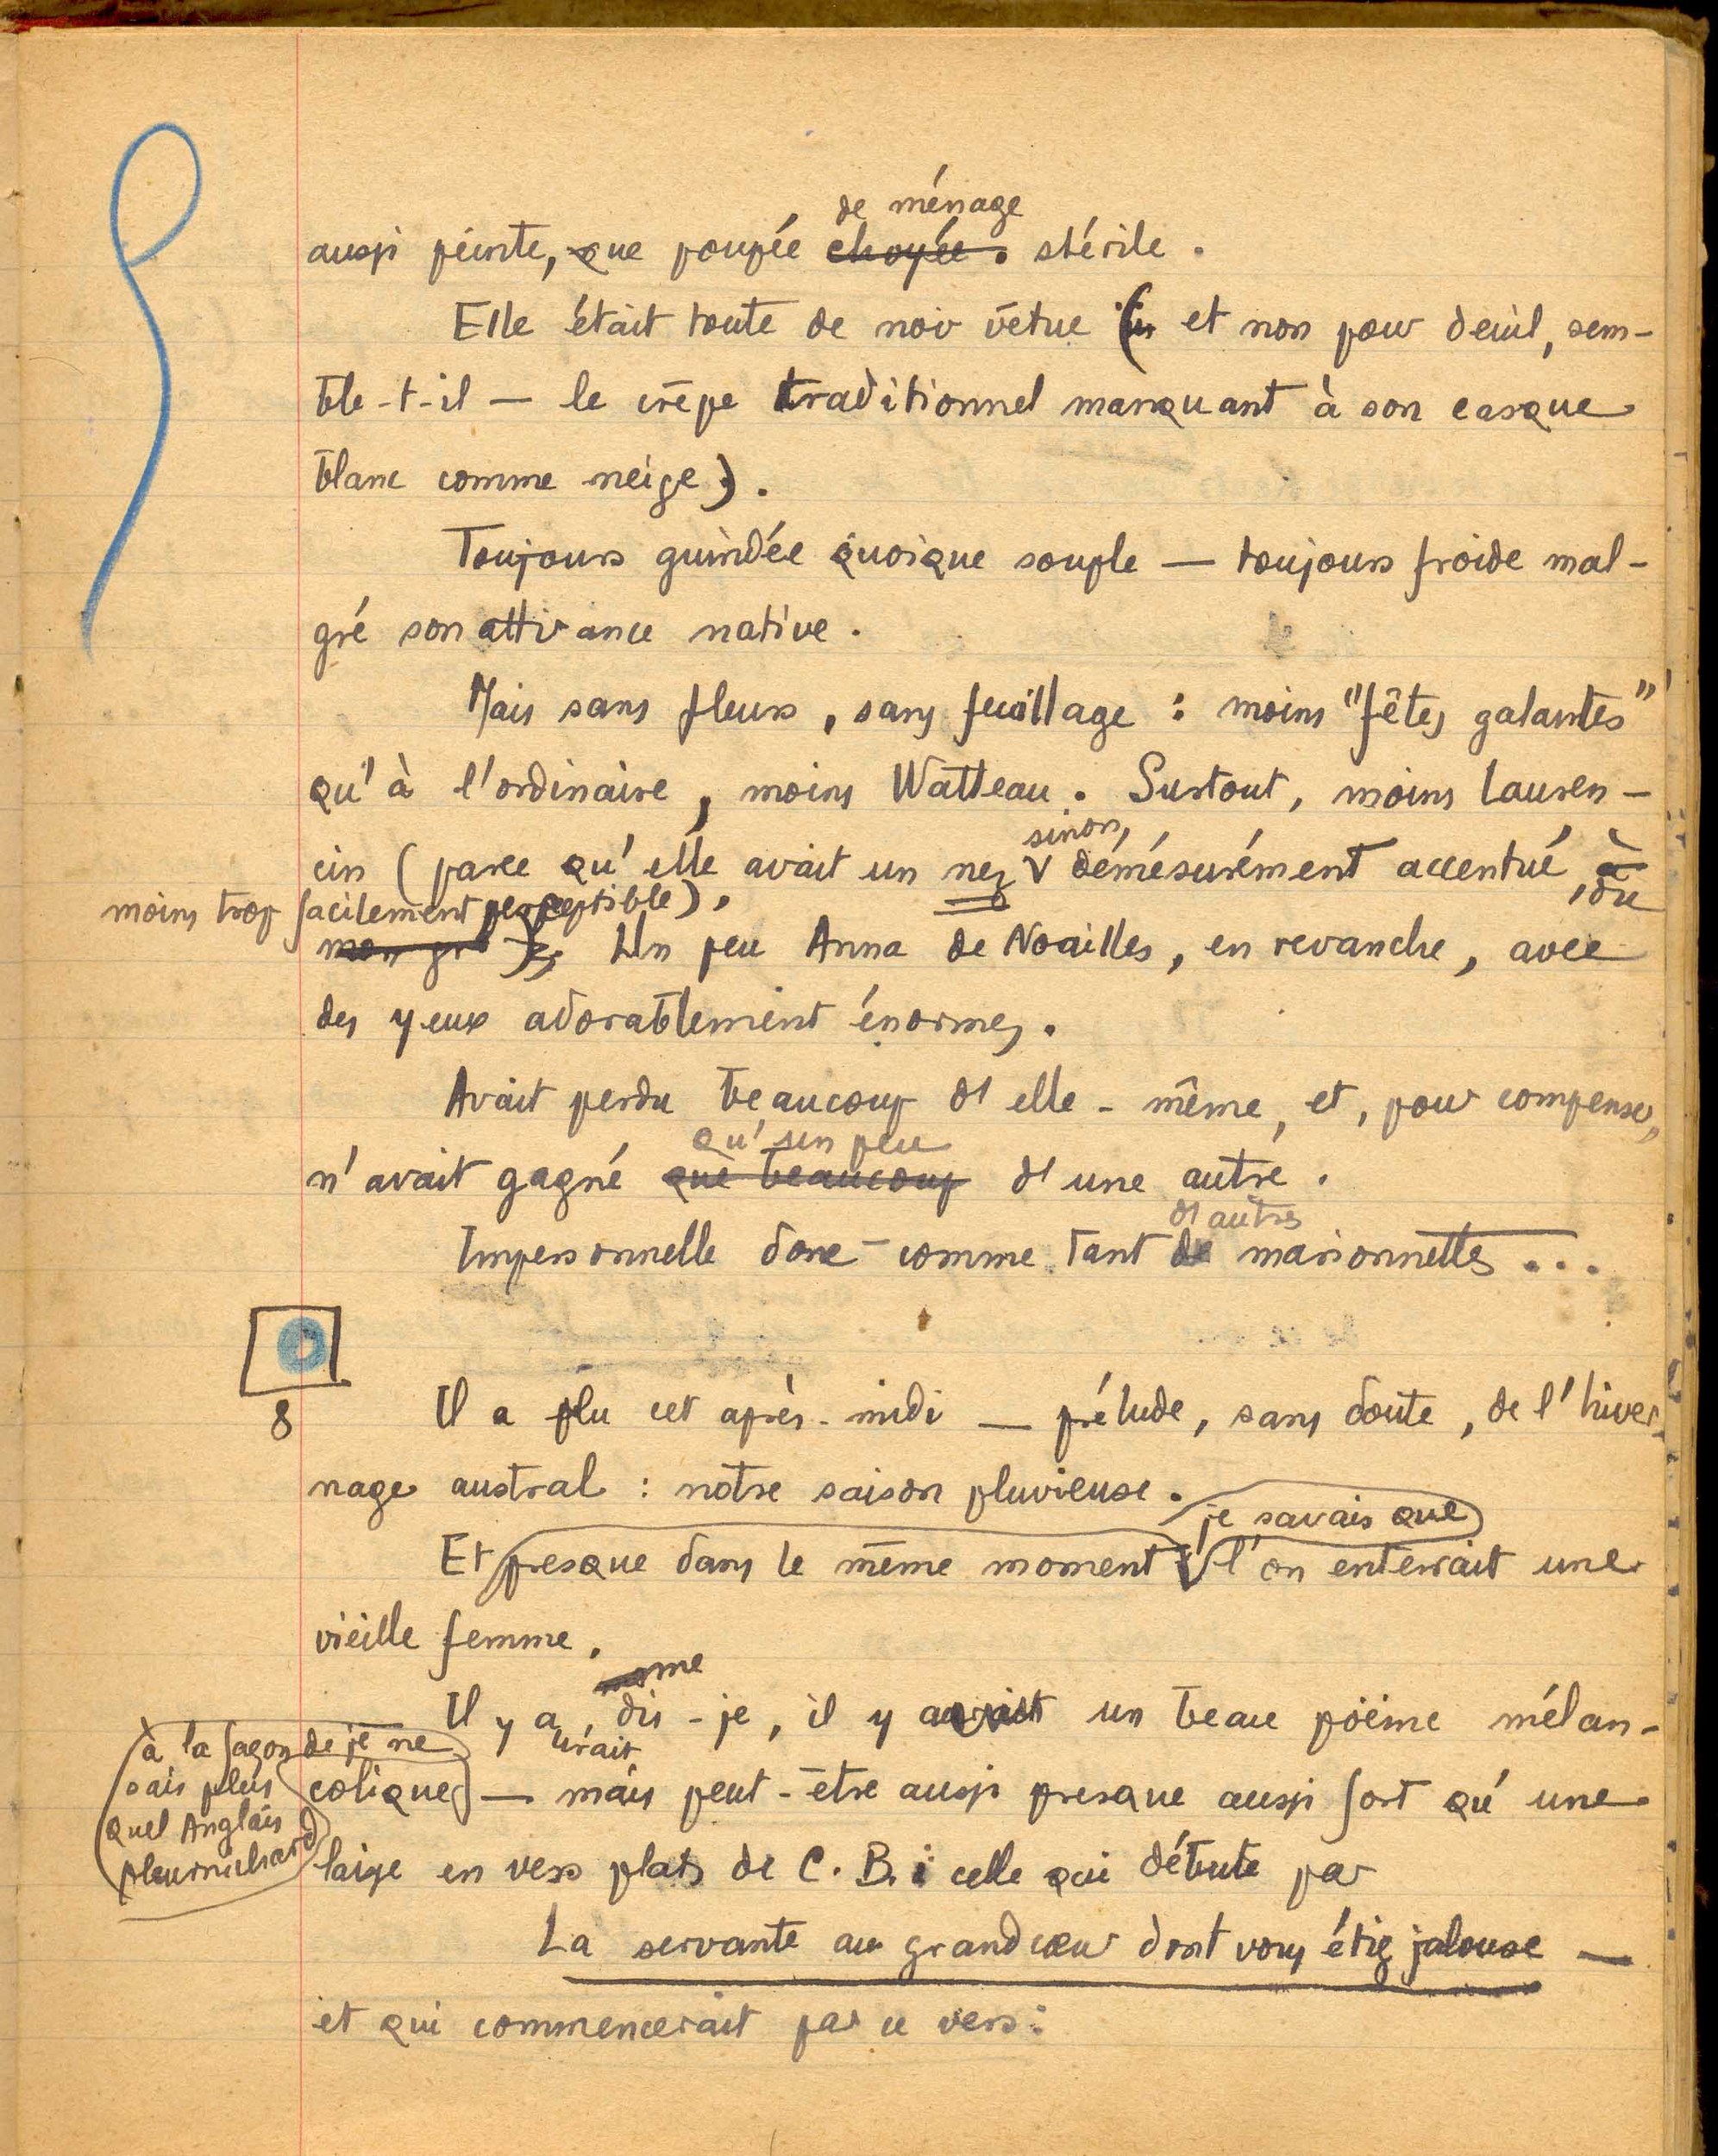 de ménage
aussi peinte, que poupée choyée. stérile.
Elle était toute de noir vêtue ( et non pour deuil, sem-
ble-t-il — le crêpe traditionnel manquant à son casque
blanc comme neige).
Toujours guindée quoique souple — toujours froide mal-
gré son attirance native.
Mais sans fleurs, sans feuillage : moins "fêtes galantes"
qu'à l'ordinaire, moins Watteau. Surtout, moins Lauren-
sinon,
cin (parce qu'elle avait un nez démésurément accentué, à
du
moins trop facilement perceptible).
mon gré). Un peu Anna de Noailles, en revanche, avec
des yeux adorablement énormes.
Avait perdu beaucoup d'elle-même, et, pour compenser,
qu'un peu
n'avait gagné que beaucoup d'une autre.
d'autres
Impersonnelle donc — comme tant de marionnettes...
8
Il a plu cet après-midi — prélude, sans doute, de l'hiver-
nage austral : notre saison pluvieuse.
je savais que
Et presque dans le même moment l'on enterrait une
vieille femme.
me
Il y a, dis-je, il y aurait un beau poëme mélan-
urait
à la façon de je ne
sais plus
quel Anglais
pleurnichard
colique — mais peut-être aussi presque aussi fort qu'une
laisse en vers plats de C. B. : celle qui débute par
La servante au grand cœur dont vous étiez jalouse —
et qui commencerait par ce vers :